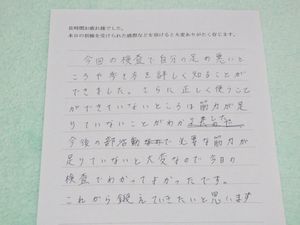 長時間お疲れ様でした。
本日の指極を受けられた感想などを頂けると大変ありがたく存じます。
今回の検査で自分の足の悪いと
ころや歩き方を詳しく知ることが
できました。さらに正しく使うこと
ができていないところは筋力が足
りていないことがわかりました
今後の部活動などで必要な筋力が
足りていないと大変なので今日の
検査でわかってよかったです。
これから鍛えていきたいと思います